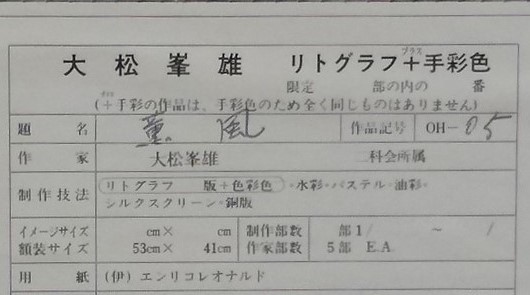 大松峯雄 リトグラフ＋手彩色
プラス
限定 部の内の 番
(＋手彩の作品は、手彩色のため全く同じものはありません)
題名 薫風 作品記号 OH-05
作家 大松峯雄 二科会所属
制作技法 リトグラフ 版＋色彩色・水彩・パステル・油彩・
シルクスクリーン・銅版
イメージサイズ cm× cm 制作部数 部1/ ~ /
額装サイズ 53cm× 41cm 作家部数 5部 E.A.
用紙 (伊) エンリコレオナルド